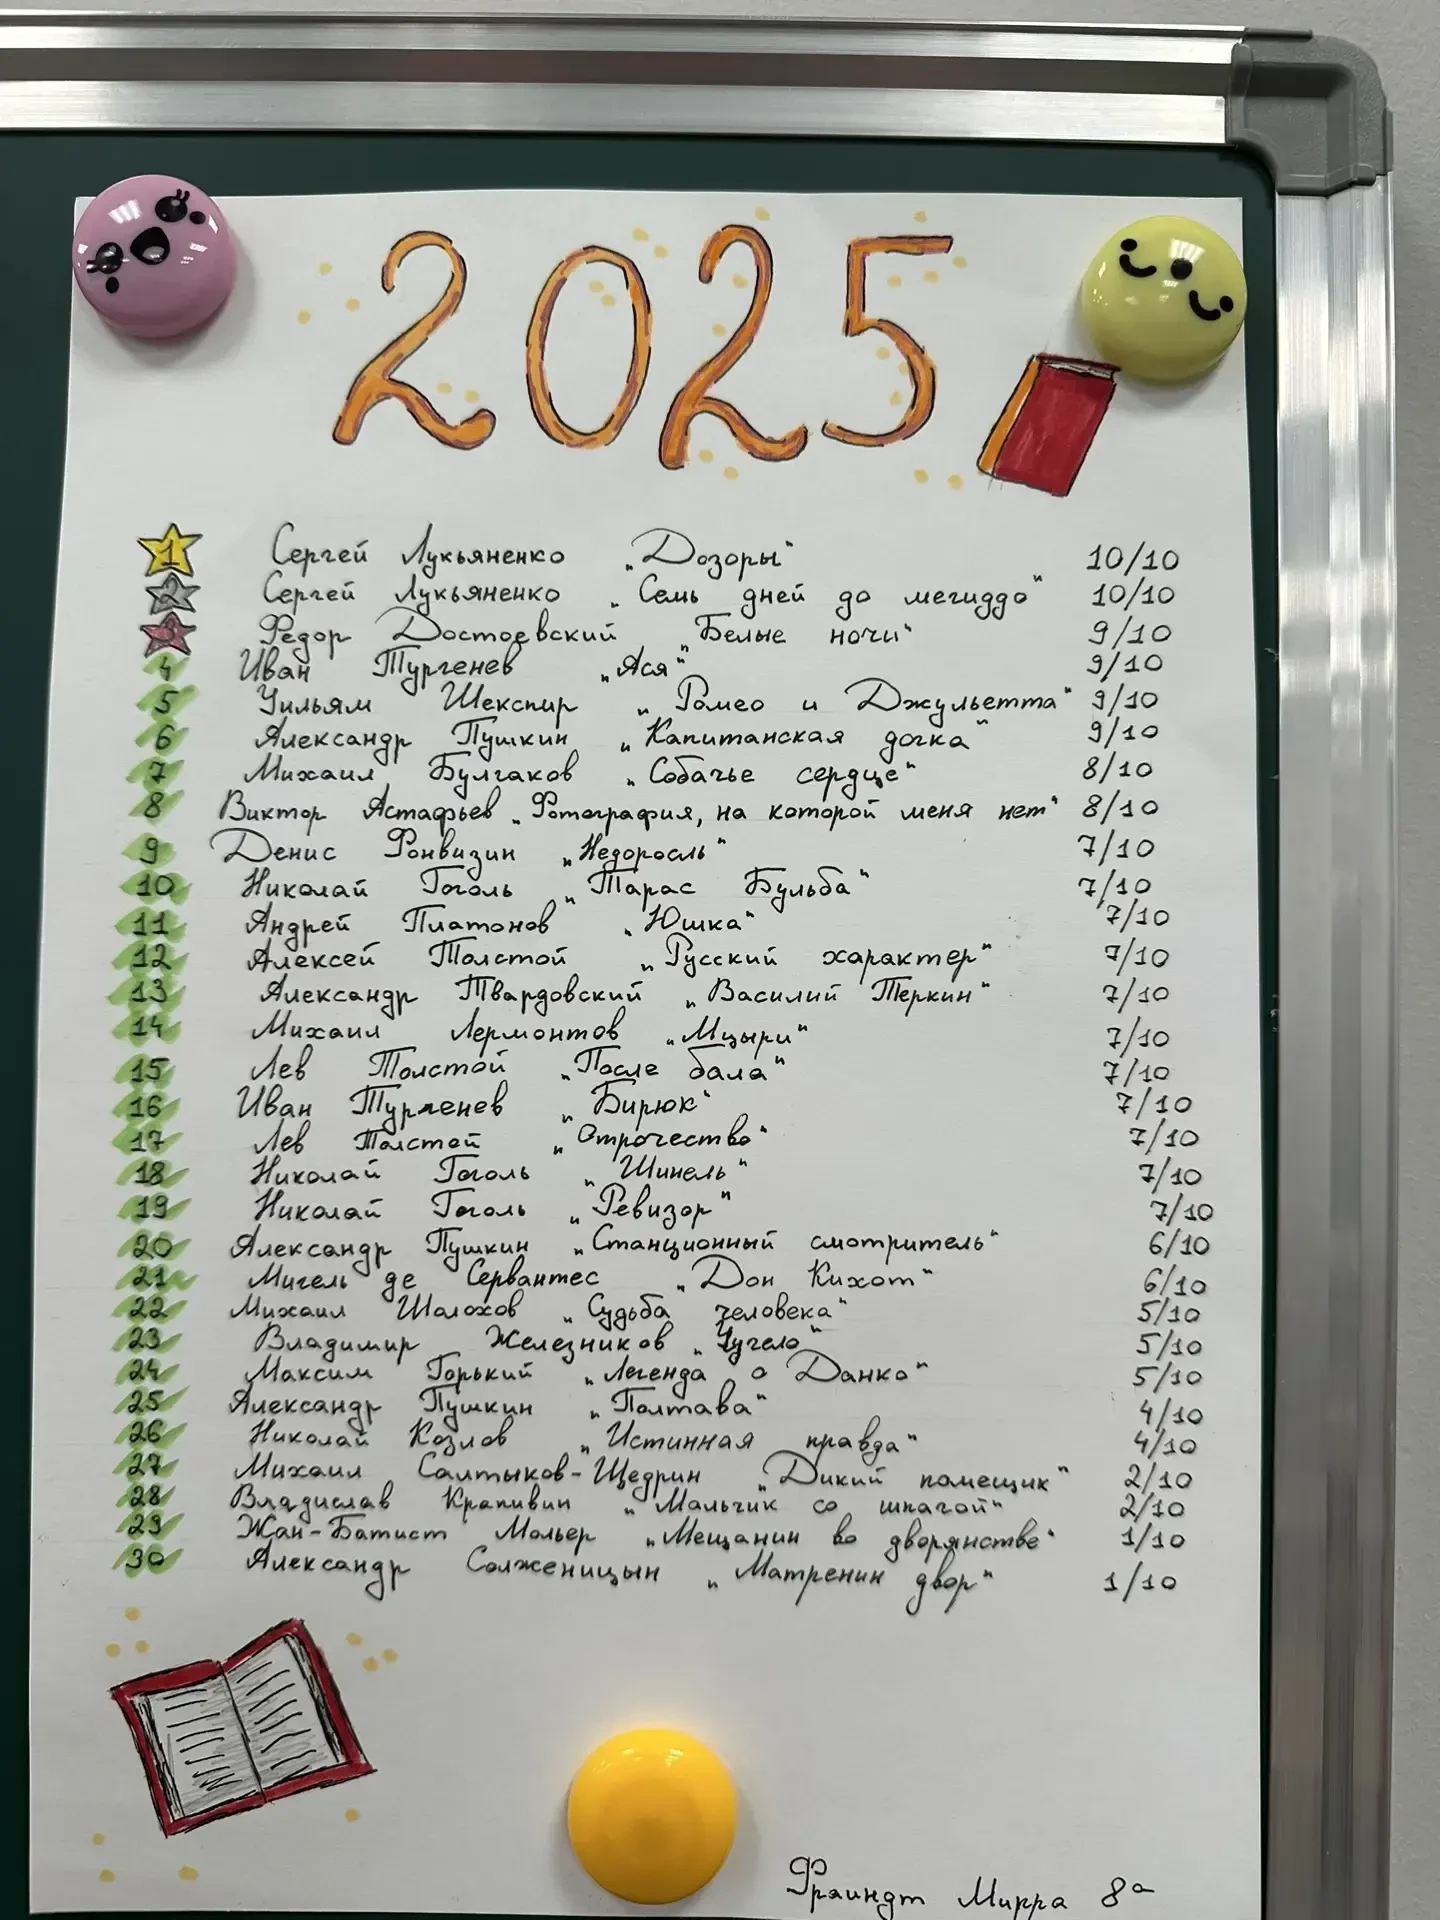 2025
1 Сергей Лукьяненко „Дозоры" 10/10
2 Сергей Лукьяненко „Семь дней до мегиддо" 10/10
3 Федор Достоевский „Белые ночи" 9/10
4 Иван Тургенев „Ася" 9/10
5 Уильям Шекспир „Ромео и Джульетта" 9/10
6 Александр Пушкин „Капитанская дочка" 9/10
7 Михаил Булгаков „Собачье сердце" 8/10
8 Виктор Астафьев „Фотография, на которой меня нет" 8/10
9 Денис Фонвизин „Недоросль" 7/10
10 Николай Гоголь „Тарас Бульба" 7/10
11 Андрей Платонов „Юшка" 7/10
12 Алексей Толстой „Русский характер" 7/10
13 Александр Твардовский „Василий Теркин" 7/10
14 Михаил Лермонтов „Мцыри" 7/10
15 Лев Толстой „После бала" 7/10
16 Иван Тургенев „Бирюк" 7/10
17 Лев Толстой „Отрочество" 7/10
18 Николай Гоголь „Шинель" 7/10
19 Николай Гоголь „Ревизор" 7/10
20 Александр Пушкин „Станционный смотритель" 6/10
21 Мигель де Сервантес „Дон Кихот" 6/10
22 Михаил Шолохов „Судьба человека" 5/10
23 Владимир Железников „Чучело" 5/10
24 Максим Горький „Легенда о Данко" 5/10
25 Александр Пушкин „Полтава" 4/10
26 Николай Козлов „Истинная правда" 4/10
27 Михаил Салтыков-Щедрин „Дикий помещик" 2/10
28 Владислав Крапивин „Мальчик со шпагой" 2/10
29 Жан-Батист Мольер „Мещанин во дворянстве" 1/10
30 Александр Солженицын „Матренин двор" 1/10
Фраиндт Мирра 8а